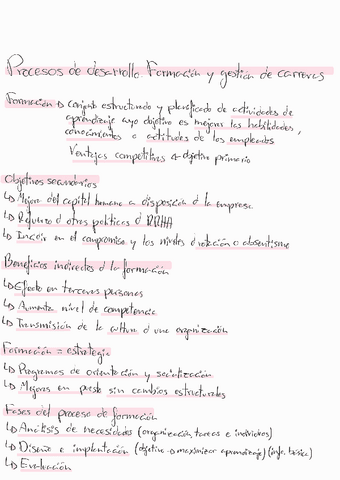 Procesos de desarrollo. Formación y gestión de carreras
Formación → conjunto estructurado y planificado de actividades de
aprendizaje cuyo objetivo es mejorar las habilidades,
conocimientos o actitudes de los empleados
Ventajas competitivas ← objetivo primario
Objetivos secundarios
↳ Mejora del capital humano a disposición d la empresa
↳ Refuerzo d otras políticas d RRHH
↳ Incidir en el compromiso y los niveles d rotación o absentismo
Beneficios indirectos d la formación
↳ Efecto en terceras personas
↳ Aumenta nivel de competencia
↳ Transmisión de la cultura d una organización
Formación = estrategia
↳ Programas de orientación y socialización
↳ Mejoras en puesto sin cambios estructurales
Fases del proceso de formación
↳ Análisis de necesidades (organización, tareas e individuos)
↳ Diseño e implantación (objetivo → maximizar aprendizaje) (info. básica)
↳ Evaluación